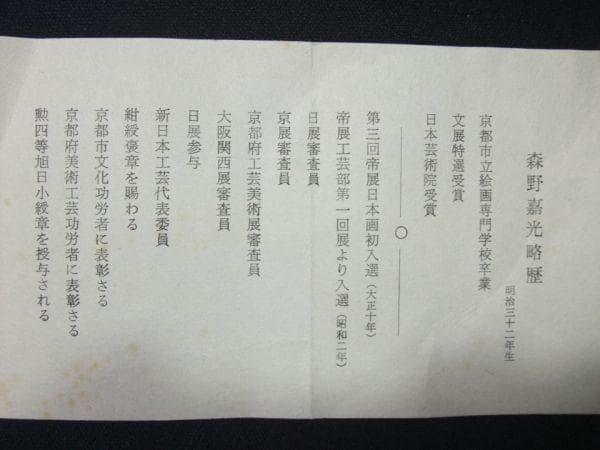 森野嘉光略歴
明治三十二年生
京都市立絵画専門学校卒業
文展特選受賞
日本芸術院受賞
○
第三回帝展日本画初入選(大正十年)
帝展工芸部第一回展より入選(昭和二年)
日展審査員
京展審査員
京都府工芸美術展審査員
大阪関西展審査員
日展参与
新日本工芸代表委員
紺綬褒章を賜わる
京都市文化功労者に表彰さる
京都府美術工芸功労者に表彰さる
勲四等旭日小綬章を授与される